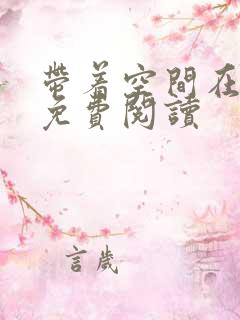 帶着空間在
免費閱讀
言歲